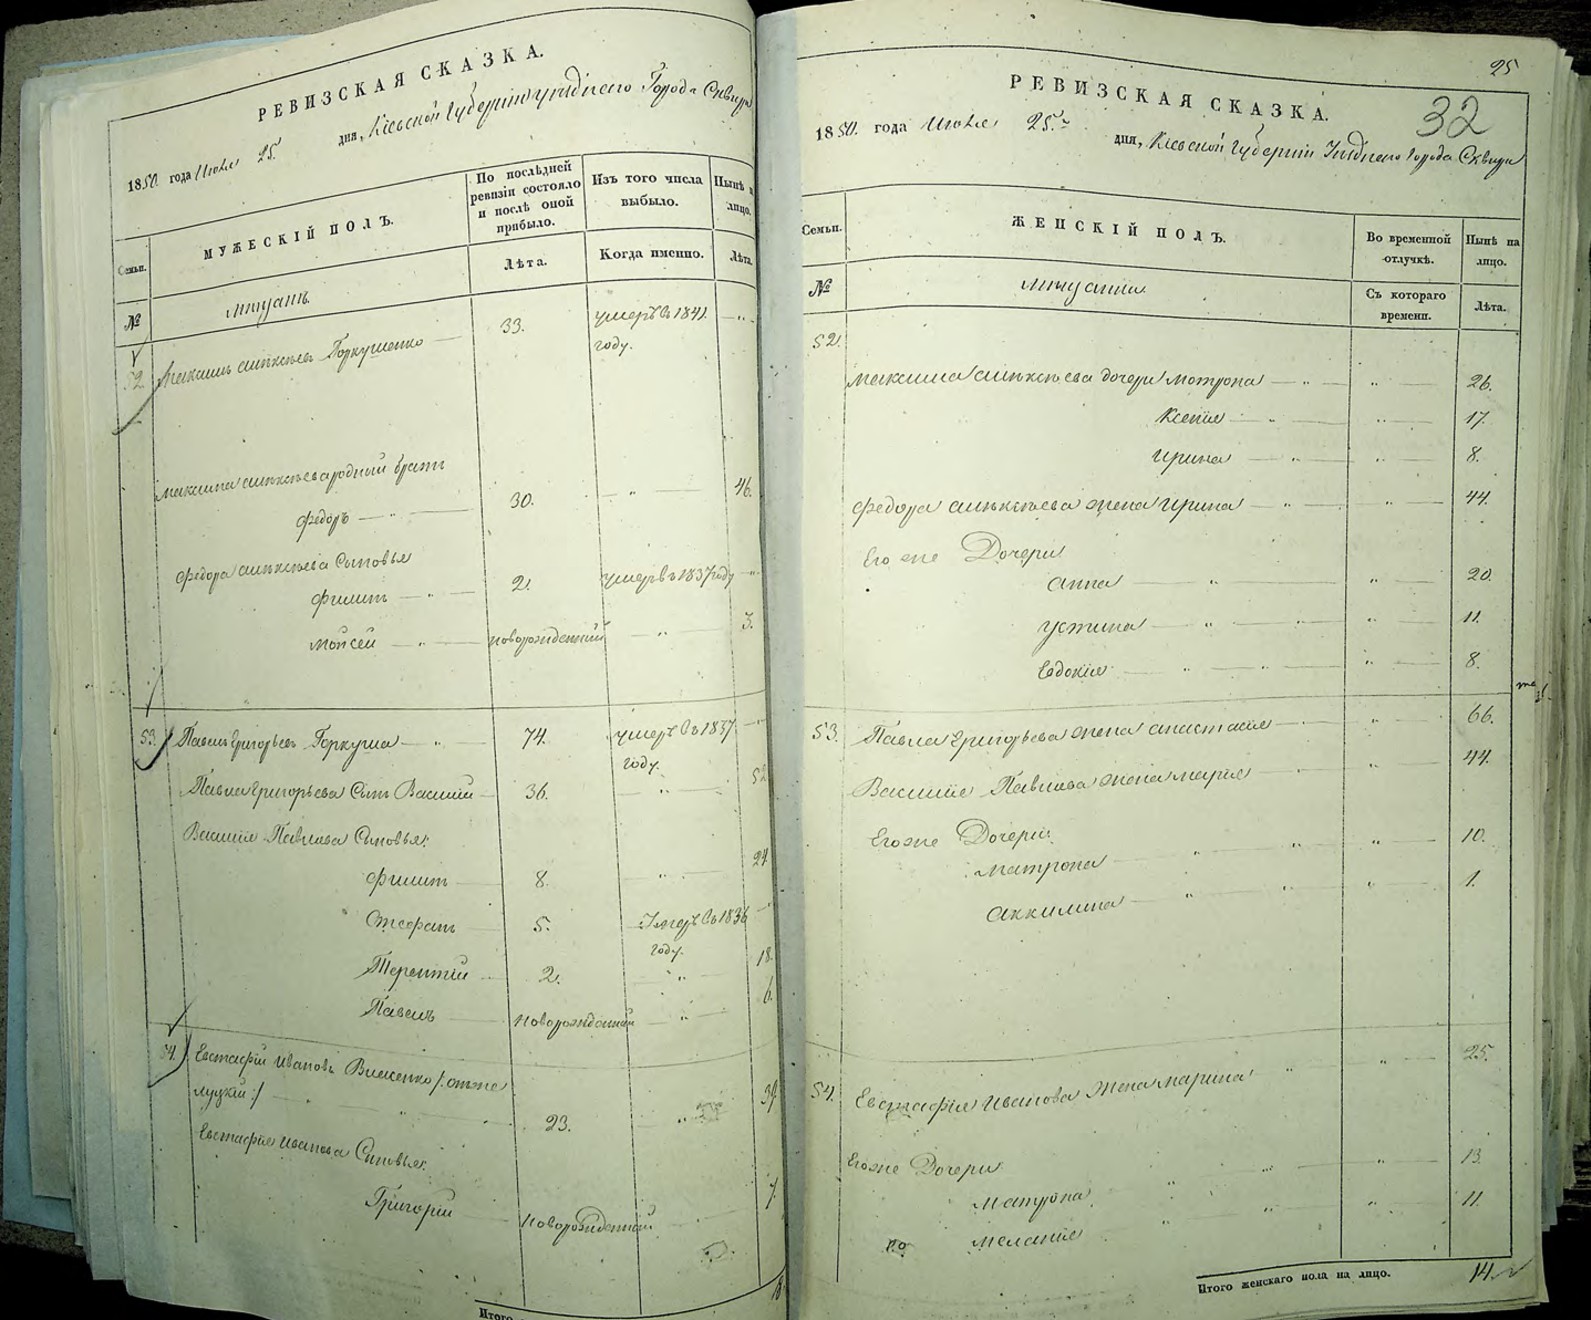 РЕВИЗСКАЯ СКАЗКА.
1850. года Июля 25. дня, Кіевской Губерніи уѣзднаго Города Сквиры
Семьи.
МУЖЕСКІЙ ПОЛЪ.
По послѣдней ревизіи состояло и послѣ оной прибыло.
Изъ того числа выбыло.
Нынѣ на лицо.
№
Лѣта.
Когда именно.
Лѣта.
мѣщанъ
52. Максимъ Алѣксѣевъ Горкушенко 33. умеръ въ 1841. году.
Максима Алѣксѣева родный братъ
Федоръ 30. 46.
Федора Алѣксѣева Сыновья
Филипъ 2. умеръ въ 1837 году
Мойсей новорожденный 3.
53. Павелъ Григорьевъ Горкуша 74. умеръ въ 1837. году.
Павла Григорьева Сынъ Василій 36. 52
Василія Павлова Сыновья:
Филипъ 8. 24
Стефанъ 5. Умеръ въ 1836 году.
Терентій 2. 18.
Павелъ новорожденный 6.
54. Евстафій Ивановъ /: онже
луцкій :/ 23. 39
Евстафія Иванова Сыновья:
Григорій новорожденный 7
Итого
25
32
РЕВИЗСКАЯ СКАЗКА.
1850. года Июля 25. дня, Кіевской Губерніи Уѣзднаго Города Сквиры
Семьи.
ЖЕНСКІЙ ПОЛЪ.
Во временной отлучкѣ.
Нынѣ на лицо.
№
Съ котораго времени.
Лѣта.
мѣщанки
52.
Максима Алѣксѣева дочери Мотрона 26.
Ксенія 17.
Ирина 8.
Федора Алѣксѣева жена Ирина 44.
Его же Дочери
Анна 20.
Устина 11.
Евдокія 8.
53. Павла Григорьева жена Анастасія 66.
Василія Павлова жена Марія 44.
Его же Дочери:
Матрона 10.
Аккилина 1.
54. Евстафія Иванова Жена Марина 25.
Его же Дочери:
Матрона 13.
Меланія 11.
Итого женскаго пола на лицо. 14.